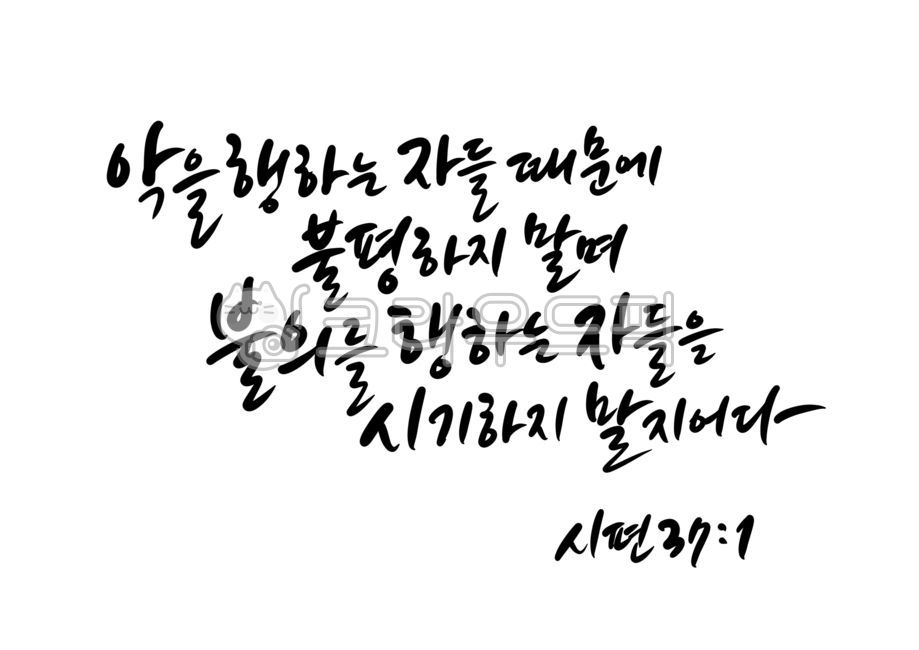 악을 행하는 자들 때문에
불평하지 말며
불의를 행하는 자들을
시기하지 말지어다
시편 37:1
크라우드픽